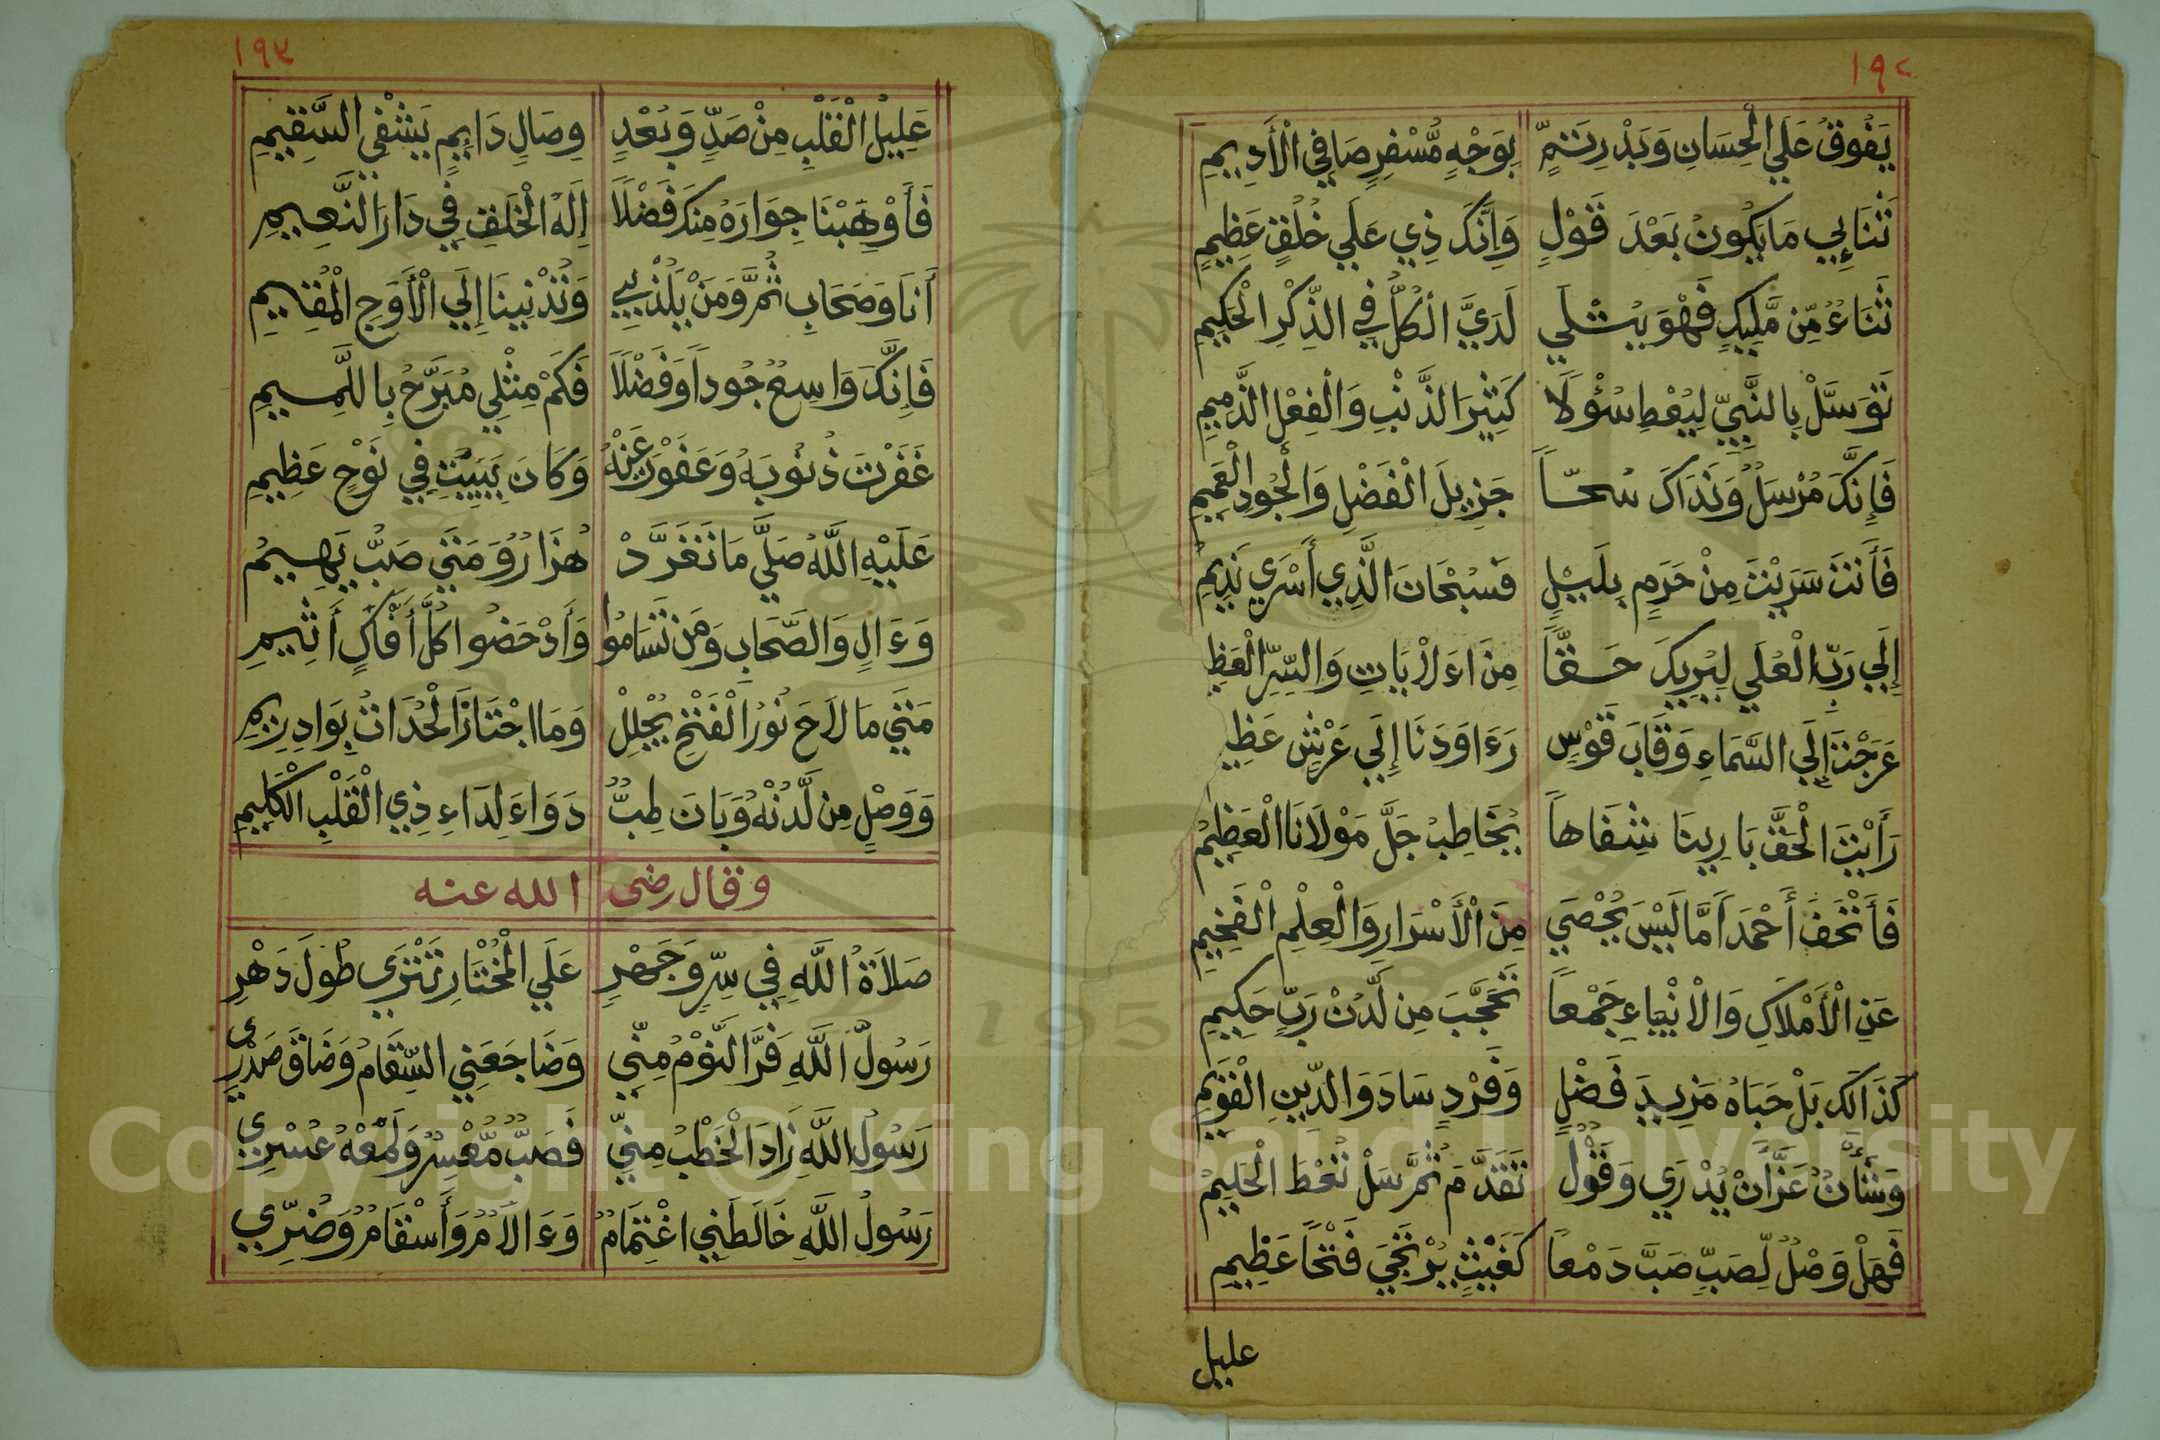 ١٩٢
يَفُوقُ عَلَي الْحِسَانِ وَبَدْرِتَمٍّ بِوَجْهٍ مُّسْفِرٍ صَافِي الْأَدِيمِ
ثَنَايِي مَا يَكُونُ بَعْدَ قَوْلِ وَإِنَّكَ ذِي عَلَي خُلُقٍ عَظِيمٍ
ثَنَاءُ مِّن مَّلِيكٍ فَهْوَ يُتْلَي لَدَيَّ الكُلُّ فِي الذِّكْرِ الْحَكِيمِ
تَوَسَّلْ بِالنَّبِيِّ لِيُعْطِ سُؤْلَا كَثِيرَ الذَّنْبِ وَالْفِعْلِ الذَّمِيمِ
فَإِنَّكَ مُرْسَلٌ وَنَدَاكَ سُحّاً جَزِيلَ الْفَضْلِ وَالْجُودِ الْعَمِيمِ
فَأَنتَ سَرَيْتَ مِنْ حَرَمٍ بِلَيْلٍ فَسُبْحَانَ الَّذِي أَسْرَي نَدِيمُ
إِلَي رَبِّ الْعُلَي لِيُرِيكَ حَقّاً مِنَ اءَلْايَاتِ وَالسِّرِّ الْعَظِ
عَرَجْتَ إِلَي السَّمَاءِ وَقَابَ قَوْسٍ رَءَا وَدَنَا إِلَي عَرْشٍ عَظِي
رَأَيْتَ الْحَقَّ بَارِينَا شِفَاهاً يُخَاطِبُ جَلَّ مَوْلَانَا الْعَظِيمُ
فَأَتْحَفَ أَحْمَدَ امَّا لَيْسَ يُحْصَي مِنَ الْأَسْرَارِ وَالْعِلْمِ الْفَخِيمِ
عَنِ الْأَمْلَاكِ وَالْانْبِيَاءِ جَمْعاً تَحَجَّبَ مِن لَّدُنْ رَبٍّ حَكِيمِ
كَذَالَكَ بَلْ حَبَاهُ مَزِيدَ فَضْلٍ وَفَرْدٍ سَادَ وَالدِّينِ الْقَوِيمِ
وَشَأْنٌ عَزَّ أَنْ يُدْرَي وَقَوْلُ تَقَدَّمْ ثُمَّ سَلْ تُعْطَ الْحَلِيمُ
فَهَلْ وَصْلٌ لِّصَبٍّ صَبَّ دَمْعاً كَغَيْثٍ يُرْتَجَي فَتْحاً عَظِيمِ
عليل
١٩٣
عَلِيلُ الْقَلْبِ مِنْ صَدٍّ وَبُعْدٍ وِصَالٍ دَايِمٍ يَشْفِي السَّقِيمِ
فَأَوْهِبْنَا جِوَارَهُ مِنكَ فَضْلاً اِلَهُ الْخَلْقِ فِي دَارِ النَّعِيمِ
أَنَا وَصَحَابِ ثُمَّ وَمَنْ يَلُذْ بِي وَتُدْنِينَا إِلَي الْأَوَجِ الْمُقِيمِ
فَإِنَّكَ وَاسِعٌ جُوداً وَفَضْلاً فَكَمْ مِثْلِي مُبَرَّحُ بِاللَّمِيمِ
غَفَرْتَ ذُنُوبَهُ وَعَفَوْتَ عَنْهُ وَكَانَ يَبِيتُ فِي نَوْحٍ عَظِيمِ
عَلَيْهِ اللَّهُ صَلَّي مَا تَغَرَّدْ هُزَارٌ وَمَتَي صَبٌّ يَهِيمُ
وَءَالٍ وَالصَّحَابِ وَمَن تَسَامُوا وَأَدْحَضُوا كُلَّ أَفَّاكٍ أَثِيمِ
مَتَي مَا لَاحَ نُورُ الْفَتْحِ يُجْلِلْ وَمَا اجْتَازَ الْحُدَاتُ بِوَادِ رِيمِ
وَوَصْلٍ مِن لَّدُنْهُ وَبَانَ طِبٌّ دَوَاءَ لِدَاءِ ذِي الْقَلْبِ الْكَلِيمِ
وقال رضى الله عنه
صَلَاةُ اللَّهِ فِي سِّرٍ وَجَهْرِ عَلَي الْمُخْتَارِ تَتْرَي طُولَ دَهْرِ
رَسُولَ اللَّهِ فَرَّ النَّوْمُ مِنِّي وَضَاجَعَنِي السَّقَامُ وَضَاقَ صَدْرِي
رَسُولُ اللَّهِ زَادَ الْخَطْبُ مِنِّي فَصَبٌّ مُّعْسِرٌ وَلَمْعُهُ عُسْرِي
رَسُولُ اللَّهِ خَالَطَنِي اغْتِمَامٌ وَءَالَامٌ وَأَسْقَامٌ وَضُرِّي
Copyright © King Saud University
1957